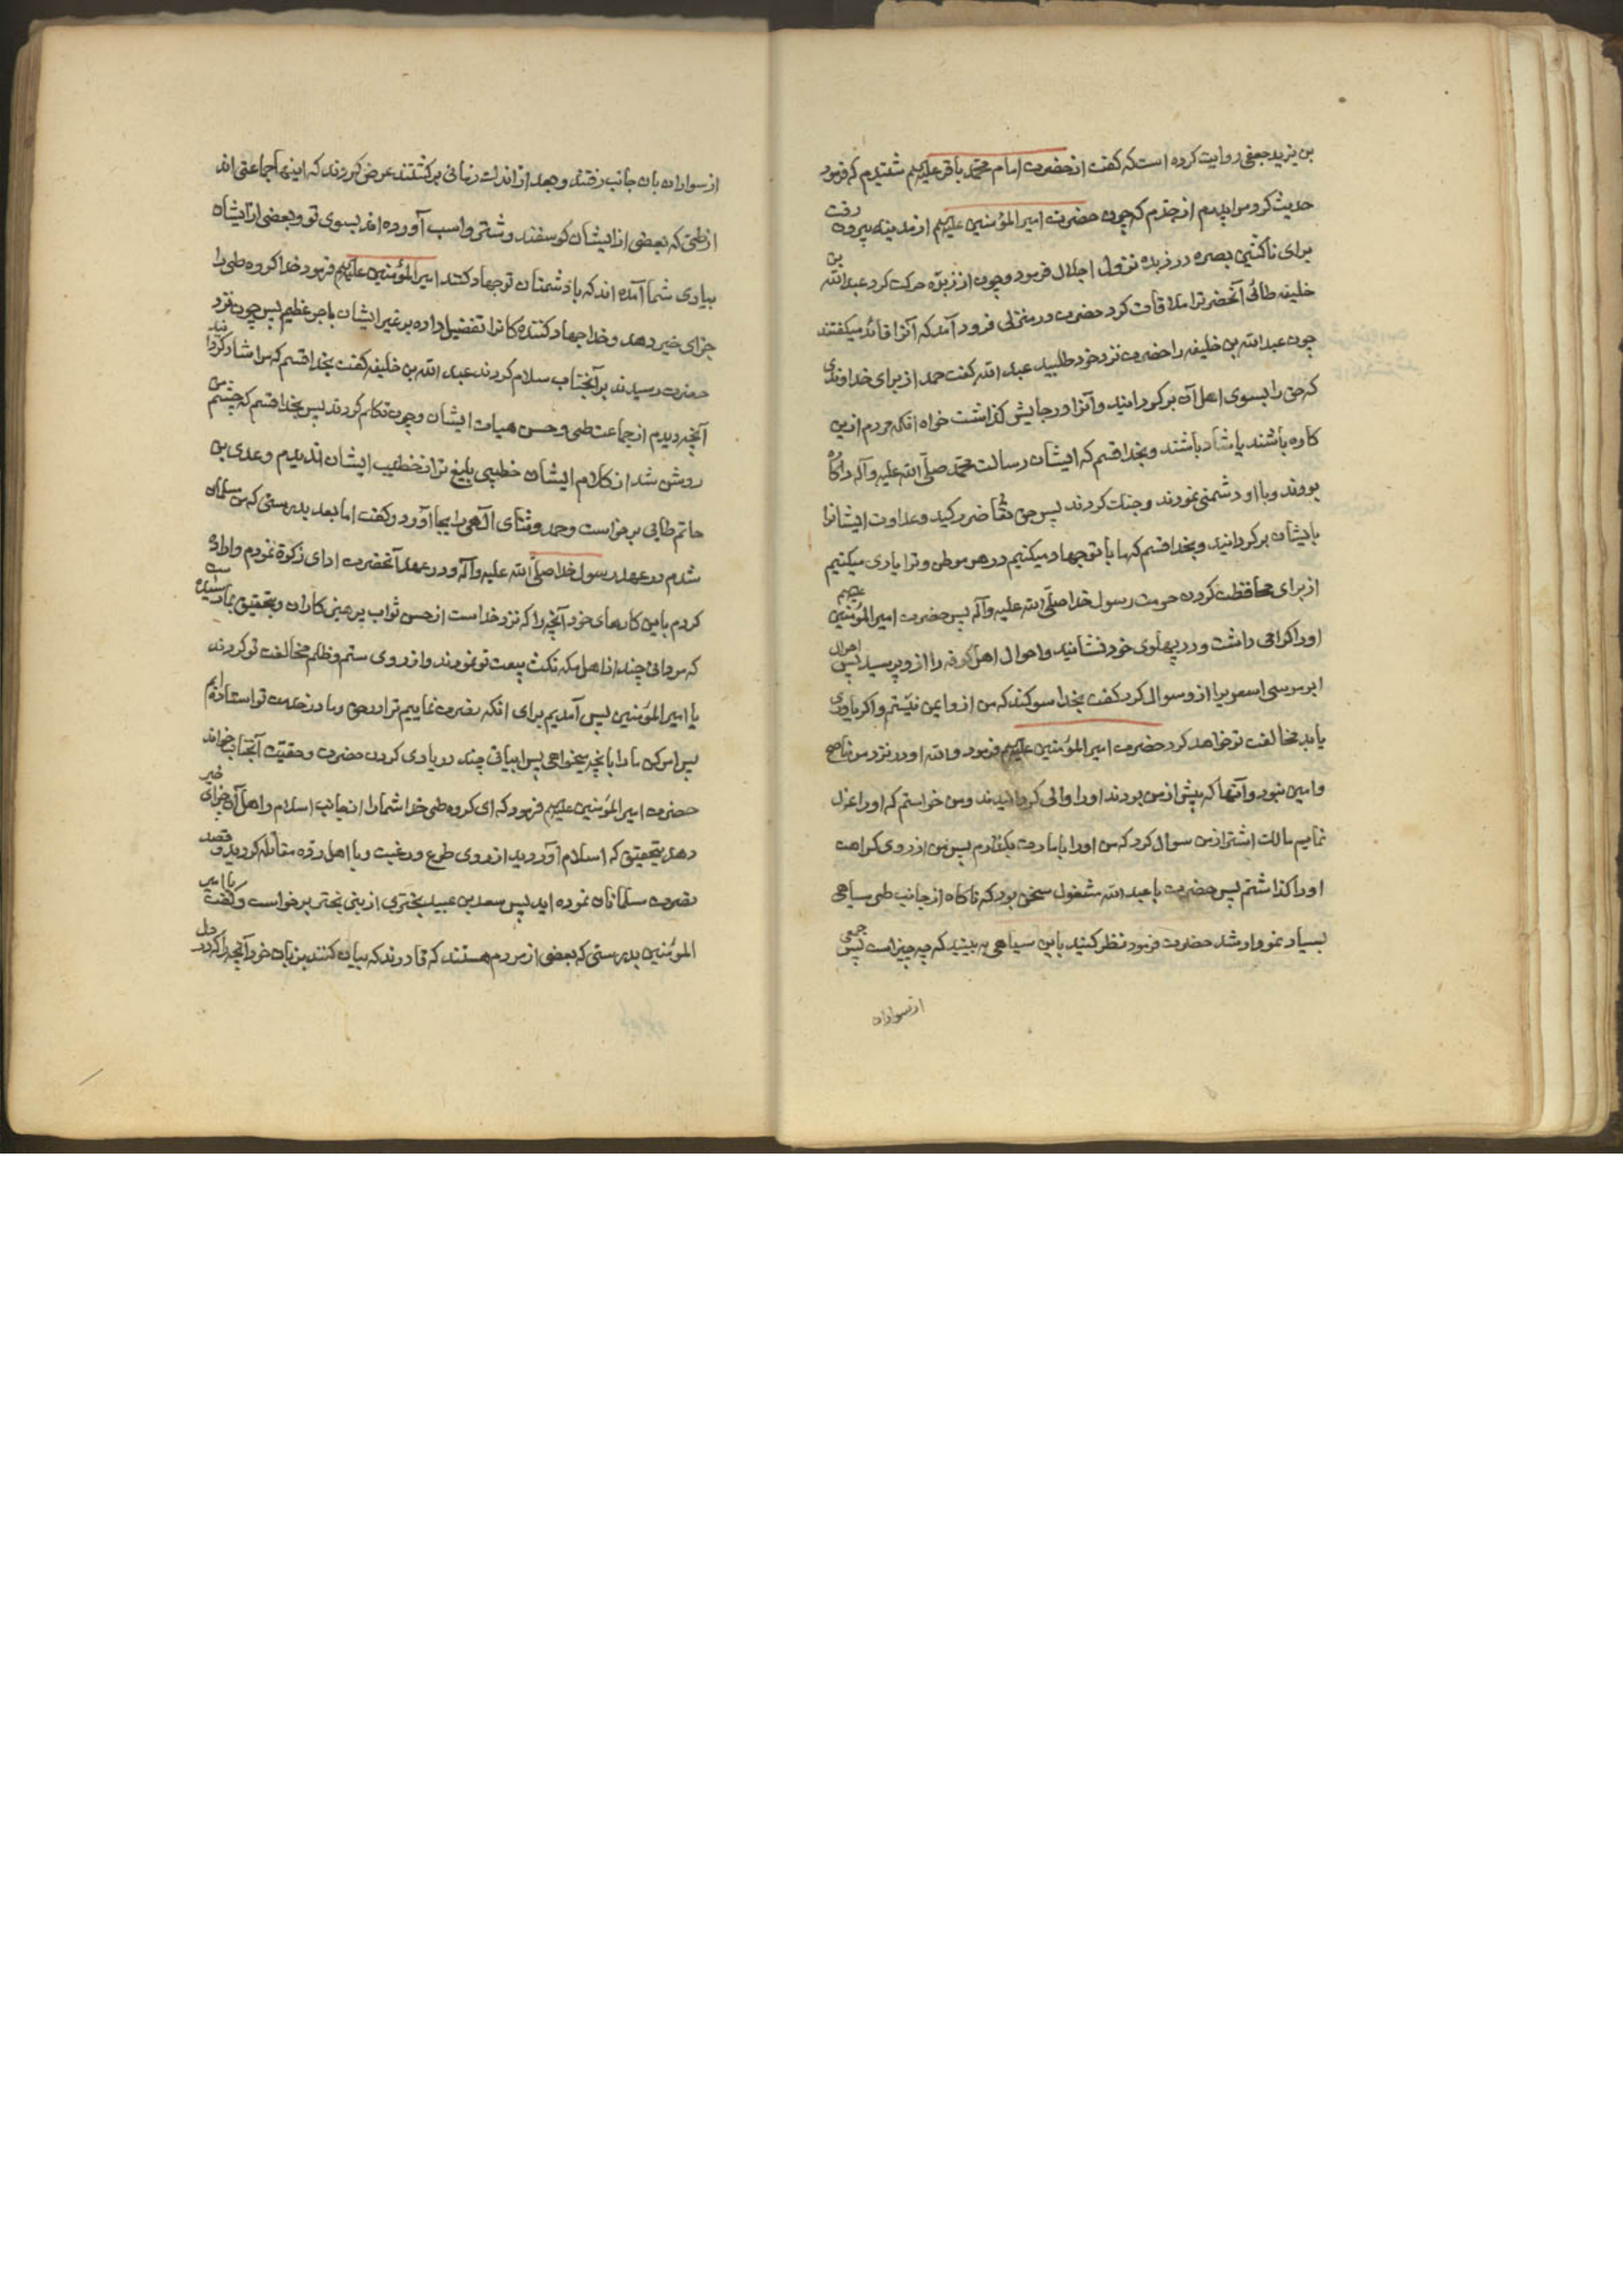 بن یزید جعفی روایت کرده است که گفت از حضرت امام محمد باقر علیهم شنیدم که فرمود
حدیث کرد مرا پدرم از جدم که چون حضرت امیرالمؤمنین علیهم از مدینه بیرون رفت
برای ناکثین بصره در زبده نزول اجلال فرمود و چون از زبذه حرکت کرد عبدالله بن
خلیفه طائی آنحضرترا ملاقات کرد حضرت در منزلی فرود آمد که آنرا قائد میگفتند
چون عبدالله بن خلیفه را حضرت نزد خود طلبید عبدالله گفت حمد از برای خداوندی
که حق را بسوی اهل آن برگردانید و آنرا در جایش گذاشت خواه آنکه مردم ازین
کاره باشند یا شاد باشند و بخدا قسم که ایشان رسالت محمد صلی الله علیه وآله را کاره
بودند و با او دشمنی نمودند و جنگ کردند پس حق تعالی ضرر کید و عداوت ایشانرا
بایشان برگردانید و بخدا قسم که ما با تو جهاد میکنیم در هر موطن و ترا یاری میکنیم
از برای محافظت کردن حرمت رسول خدا صلی الله علیه وآله پس حضرت امیرالمؤمنین علیهم
اورا گرامی داشت و در پهلوی خود نشانید و احوال اهل کوفه را از و پرسید پس احوال
ابو موسی اسعریرا از و سوال کرد گفت بخدا سوگند که من از و ایمن نیستم و اگر یاوری
یابد مخالفت تو خواهد کرد حضرت امیرالمؤمنین علیهم فرمود والله او در نزد من ناصح
و امین نبود و آنها که پیش از من بودند اورا والی گردانیدند و من خواستم که اورا عزل
نمایم مالک اشتر از من سوال کرد که من اورا بامارت بگذارم پس من از روی کراهت
اورا گذاشتم پس حضرت با عبدالله مشغول سخن بود که ناکاه از جانب طی سیاهی
بسیار نمودار شد حضرت فرمود نظر کنید باین سیاهی به بینید که چه چیز است پس جمعی
از سواران
از سواران بان جانب رفتند و بعد از اندک زمانی برگشتند عرض کردند که اینها جماعتی اند
از طی که بعضی از ایشان گوسفند و شتر و اسب آورده اند بسوی تو و بعضی از ایشان
بیاری شما آمده اند که با دشمنان تو جهاد کنند امیرالمؤمنین علیهم فرمود خدا گروه طی را
جزای خیر دهد و خدا جهاد کننده کانرا تفضیل داده بر غیر ایشان باجر عظیم پس چون نزد
حضرت رسیدند بر آنجناب سلام کردند عبدالله بن خلیفه گفت بخدا قسم که مرا شاد گردانید
آنچه دیدم از جماعت طی و حسن هیات ایشان و چون تکلم کردند پس بخدا قسم که چشم من
روشن شد از کلام ایشان خطیبی بلیغ تر از خطیب ایشان ندیدم و عدی بن
حاتم طایی برخواست و حمد و ثنای الهی را بجا آورد و گفت اما بعد بدرستی که من مسلمان
شدم در عهد رسول خدا صلی الله علیه وآله و در عهد آنحضرت ادای زکوة نمودم و
کردم باین کارهای خود آنچه را که نزد خدا است از حسن ثواب پرهیزکاران و بتحقیق بما رسیده
که مردانی چند از اهل مکه نکث بیعت تو نمودند و از روی ستم و ظلم مخالفت تو کردند
یا امیرالمؤمنین پس آمدیم برای انکه نصرت نماییم ترا در حق و ما در خدمت تو استاده ایم
پس امر کن مارا بانچه میخواهی پس ابیاتی چند در یاری کردن حضرت و حقیت آنجناب خواند
حضرت امیرالمؤمنین علیهم فرمود که ای گروه طی خدا شمارا از جانب اسلام و اهل آن جزای خیر
دهد بتحقیق که اسلام آوردید از روی طوع و رغبت و با اهل رده مقاتله کردید و قصد
نصرت مسلمانان نموده اید پس سعد بن عبید بختری از بنی بختر برخواست و گفت یا امیر
المؤمنین بدرستی که بعضی از مردم هستند که قادرند که بیان کنند بزبان خود آنچه را که در دل